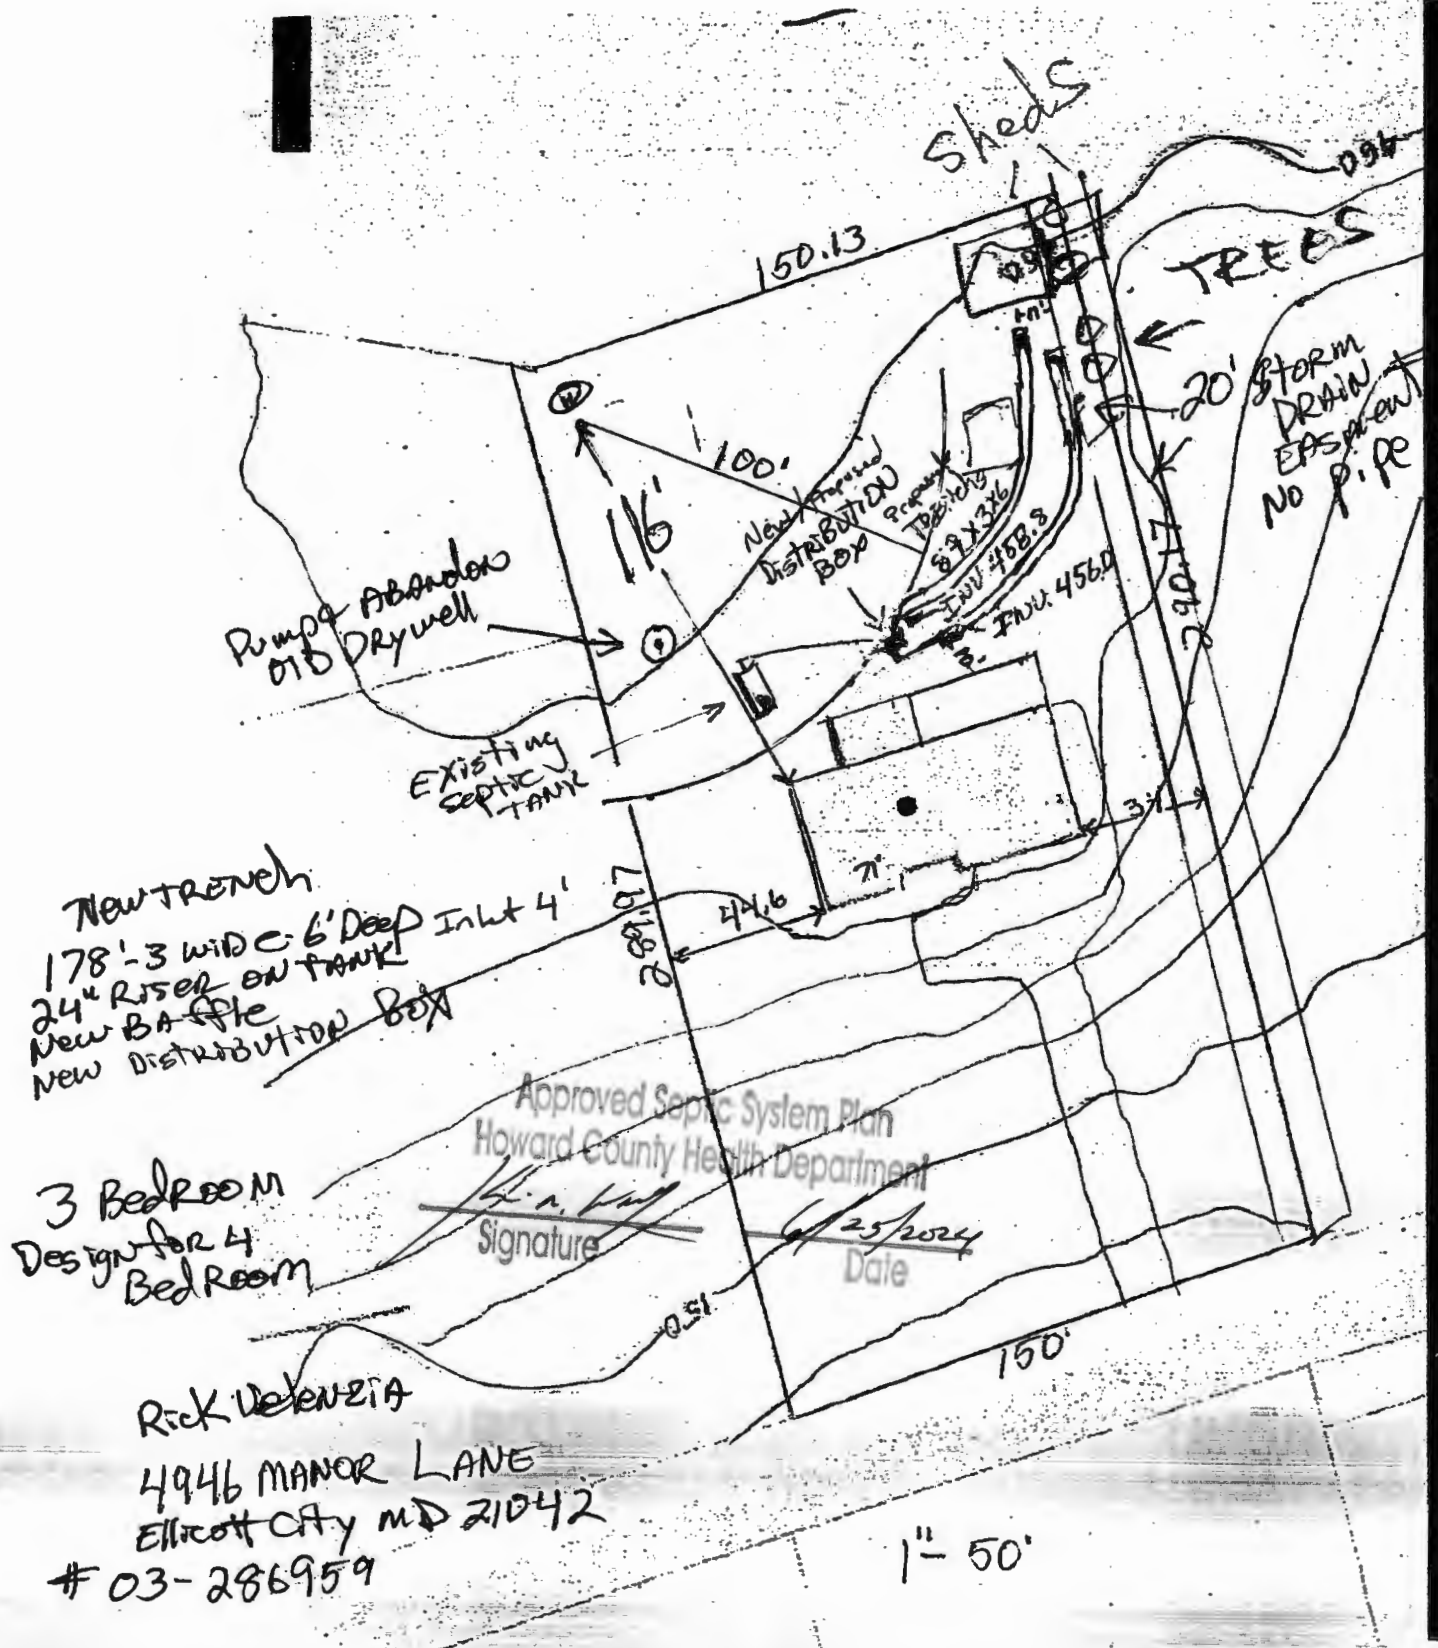 Sheds
460
150.13
TREES
460
10'
W
100'
116'
20' STORM
DRAIN
EASMENT
NO PIPE
New/Proposed
DISTRIBUTION
BOX
Proposed
89X3X6
INV. 458.8
INV. 456.0
290.17
Pump & ABANDON
OLD DRYwell
Existing
Septic
TANK
3'
37
71'
44.6
289.97
New TRENCH
178'-3 WIDE-6' Deep Inlet 4'
24" RISER ON TANK
New BAffle
New DISTRIBUTION BOX
Approved Septic System Plan
Howard County Health Department
6/25/2024
Signature
Date
3 BedROOM
Design for 4
BedROOM
450
150'
Rick Velenzia
4946 MANOR LANE
Ellicott City MD 21042
# 03-286959
1"- 50'